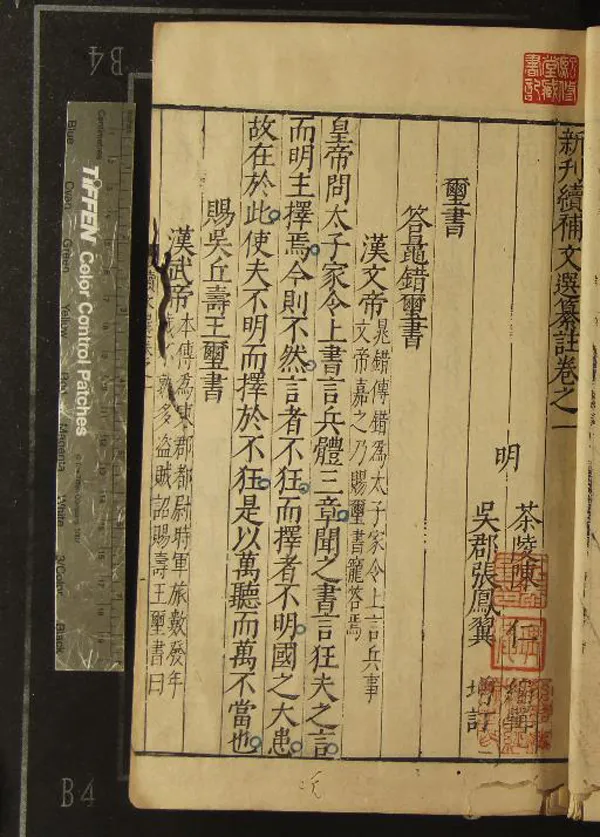 新刊續補文選纂註卷之一
明
茶陵陳仁編輯
吳郡張鳳翼增訂
璽書
答鼂錯璽書
漢文帝
晁錯傳錯為太子家令上言兵事
文帝嘉之乃賜璽書寵答焉
皇帝問太子家令上書言兵體三章聞之書言狂夫之言
而明主擇焉今則不然言者不狂而擇者不明國之大患
故在於此使夫不明而擇於不狂是以萬聽而萬不當也
賜吳丘壽王璽書
漢武帝
本傳為東郡都尉時軍旅數發年
歲不熟多盜賊詔賜壽王璽書曰
TIFFEN Color Control Patches
Centimetres
Blue
Cyan
Green
Yellow
Red
Magenta
White
3/Color
Black
B4
B4